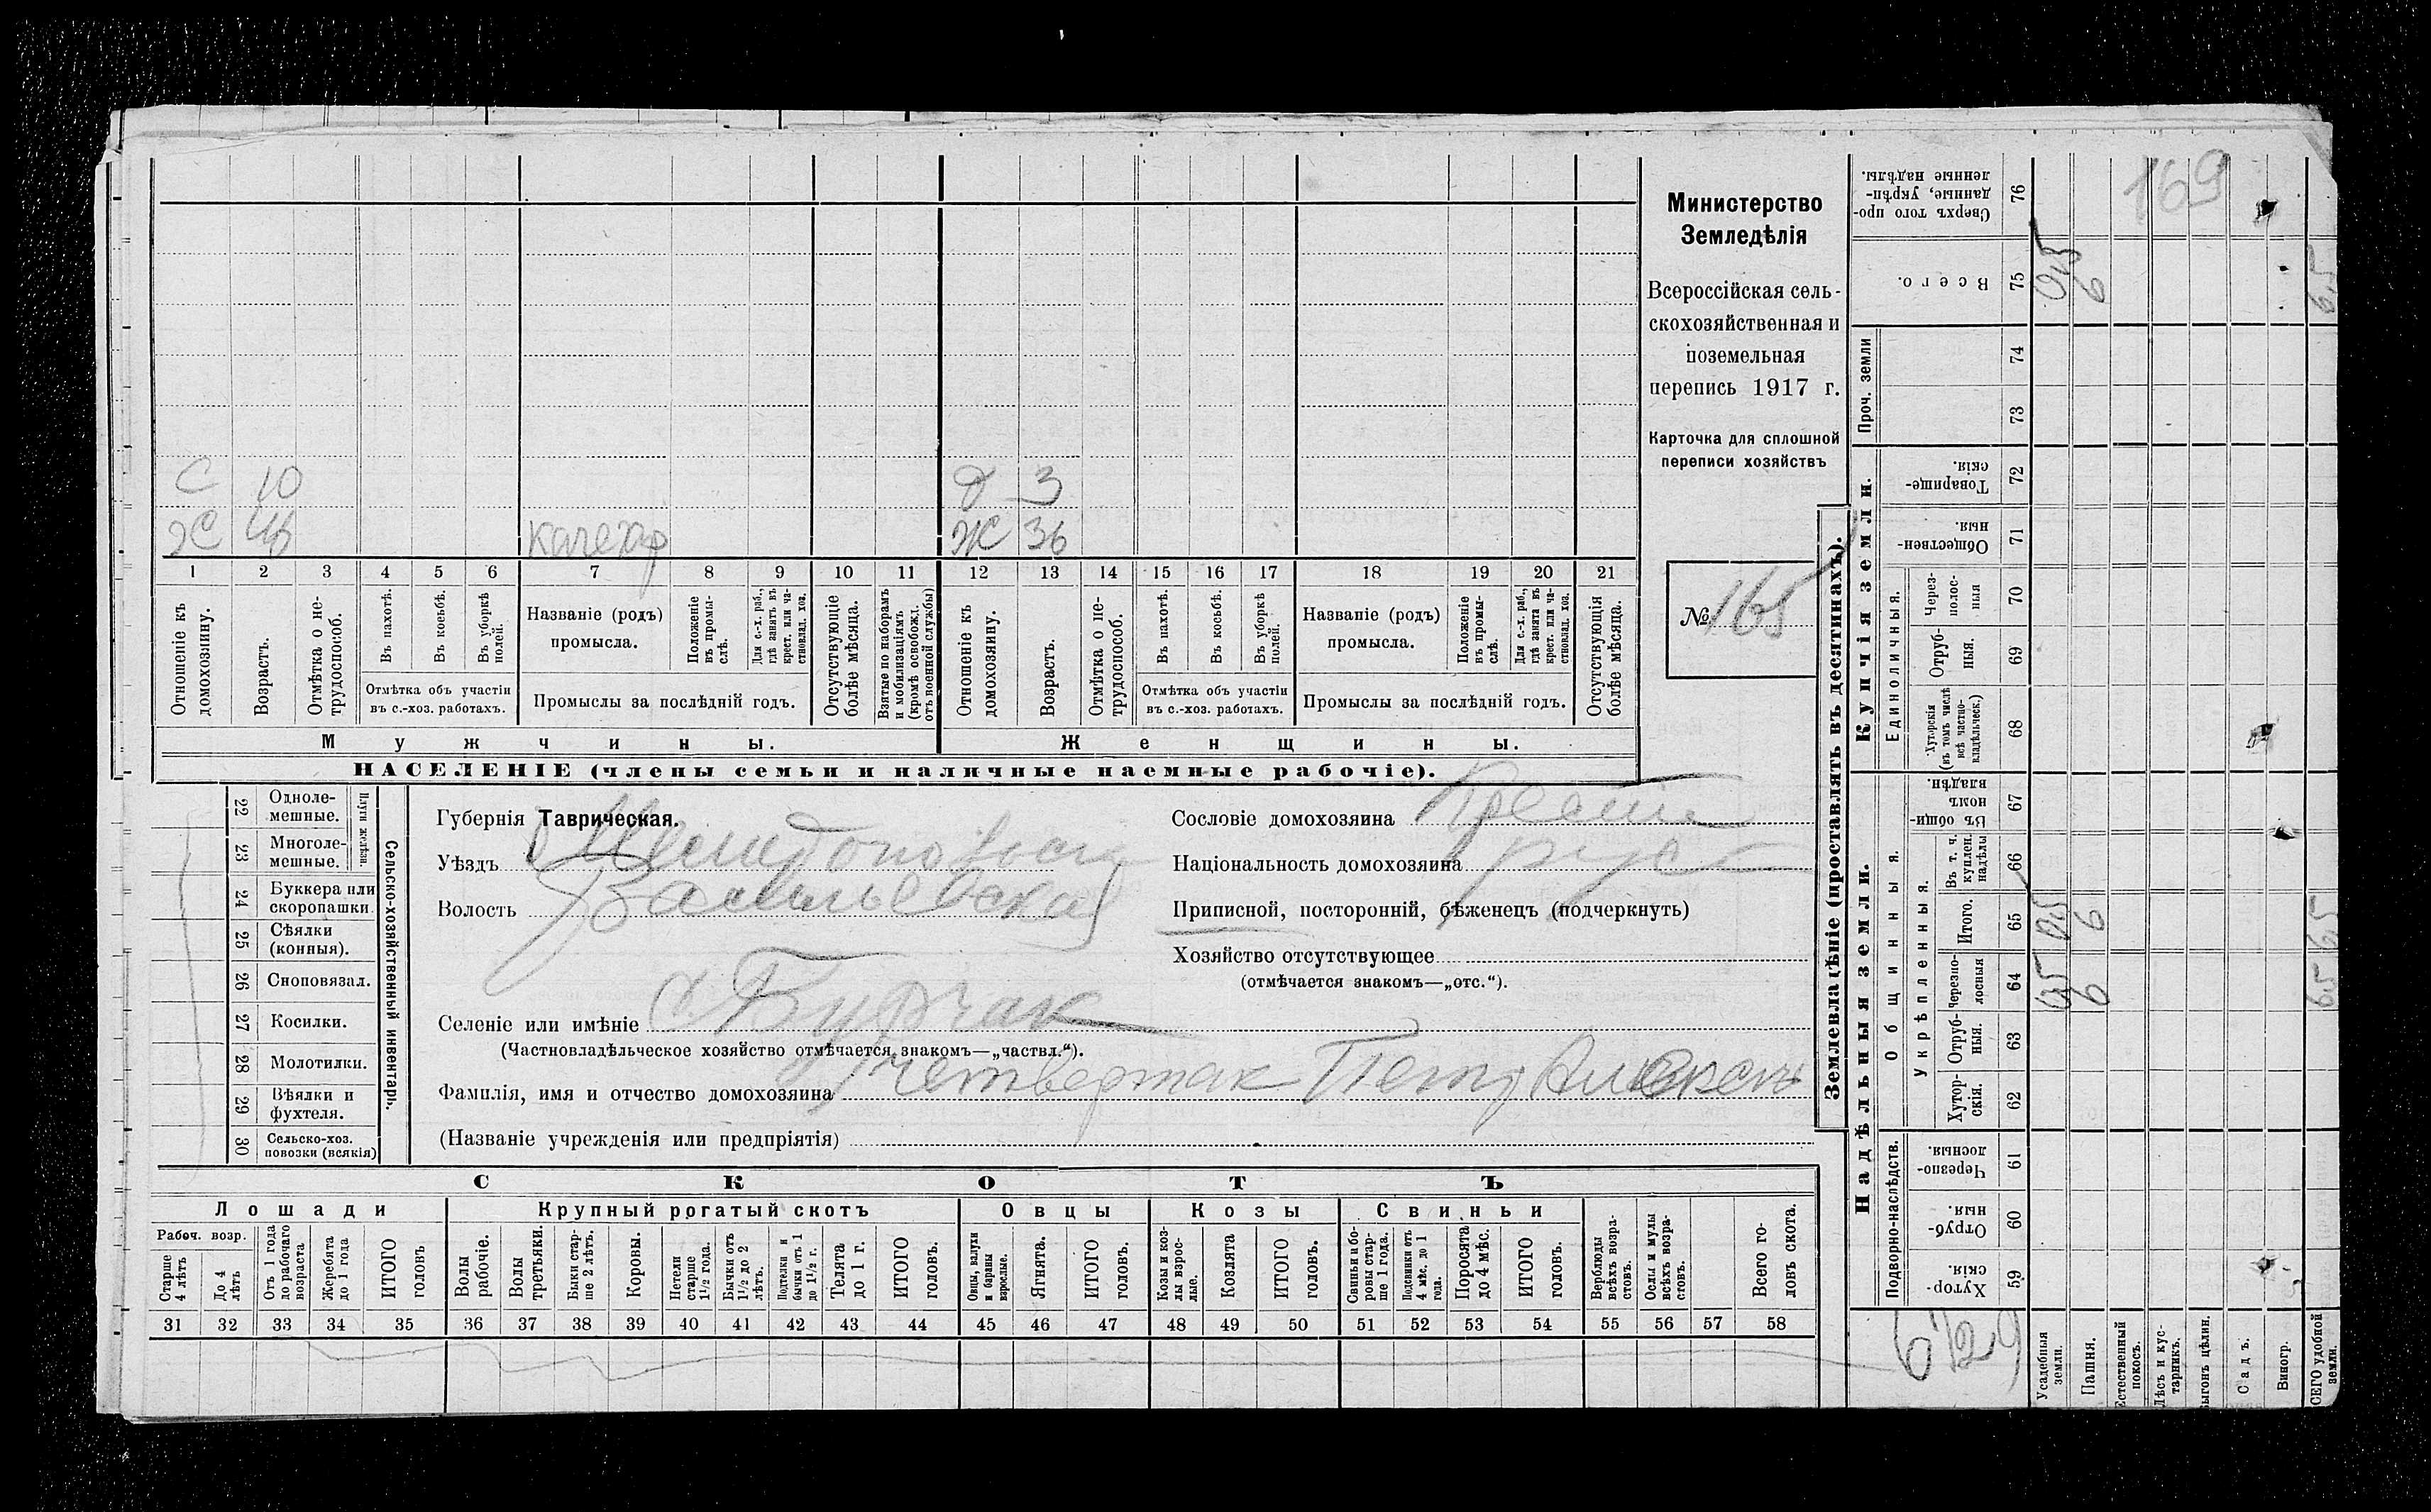 Министерство
Земледѣлія
Всероссійская сель-
скохозяйственная и
поземельная
перепись 1917 г.
Карточка для сплошной
переписи хозяйствъ
№ 165
С 10 д 3
Ж 36
1 2 3 4 5 6 7 8 9 10 11 12 13 14 15 16 17 18 19 20 21
Отношеніе къ домохозяину.
Возрастъ.
Отмѣтка о не-трудоспособ.
Въ пахотѣ.
Въ косьбѣ.
Въ уборкѣ полей.
Отмѣтка объ участіи
въ с.-хоз. работахъ.
Названіе (родъ)
промысла.
Положеніе въ промы-слѣ.
Для с.-х. раб., гдѣ занятъ въ крест. или ча-стновлад. хоз.
Промыслы за послѣдній годъ.
Отсутствующіе болѣе мѣсяца.
Взятые по наборамъ и мобилизаціямъ (кромѣ освобожд. отъ военной службы)
Отношеніе къ домохозяину.
Возрастъ.
Отмѣтка о не-трудоспособ.
Въ пахотѣ.
Въ косьбѣ.
Въ уборкѣ полей.
Отмѣтка объ участіи
въ с.-хоз. работахъ.
Названіе (родъ)
промысла.
Положеніе въ промы-слѣ.
Для с.-х. раб., гдѣ занята въ крест. или ча-стновлад. хоз.
Промыслы за послѣдній годъ.
Отсутствующія болѣе мѣсяца.
Мужчины.
Женщины.
НАСЕЛЕНІЕ (члены семьи и наличные наемные рабочіе).
Сельско-хозяйственный инвентарь.
Плуги желѣзн.
22 Одноле-
мешные.
23 Многоле-
мешные.
24 Буккера или
скоропашки
25 Сѣялки
(конныя).
26 Сноповязал.
27 Косилки.
28 Молотилки.
29 Вѣялки и
фухтеля.
30 Сельско-хоз.
повозки (всякія)
Губернія Таврическая.
Уѣздъ
Волость Васильевская
Селеніе или имѣніе с. Бурчак
(Частновладѣльческое хозяйство отмѣчается знакомъ—„частвл.“).
Фамилія, имя и отчество домохозяина Четвертак Петр
(Названіе учрежденія или предпріятія)
Сословіе домохозяина
Національность домохозяина рус
Приписной, посторонній, бѣженецъ (подчеркнуть)
Хозяйство отсутствующее
(отмѣчается знакомъ—„отс.“).
СКОТЪ
Лошади
Крупный рогатый скотъ
Овцы
Козы
Свиньи
Рабоч. возр.
Старше 4 лѣтъ
До 4 лѣтъ
Отъ 1 года до рабочаго возраста
Жеребята до 1 года
ИТОГО головъ
Волы рабочіе.
Волы третьяки.
Быки стар-ше 2 лѣтъ.
Коровы.
Нетели старше 1½ года.
Бычки отъ 1½ до 2 лѣтъ.
Подтелки и бычки отъ 1 до 1½ г.
Телята до 1 г.
ИТОГО головъ.
Овцы, валухи и бараны взрослые.
Ягнята.
ИТОГО головъ.
Козы и коз-лы взрос-лые.
Козлята
ИТОГО головъ.
Свиньи и бо-ровы стар-ше 1 года.
Подсвинки отъ 4 мѣс. до 1 года.
Поросята до 4 мѣс.
ИТОГО головъ.
Верблюды всѣхъ возра-стовъ.
Ослы и мулы всѣхъ возра-стовъ.
Всего го-ловъ скота.
31 32 33 34 35 36 37 38 39 40 41 42 43 44 45 46 47 48 49 50 51 52 53 54 55 56 57 58
Землевладѣніе (проставлять въ десятинахъ).
Надѣльныя земли.
Купчія земли.
Проч. земли
Подворно-наслѣдств.
Общинныя.
Укрѣпленныя.
Единоличныя.
Хутор-скія. 59
Отруб-ныя. 60
Черезпо-лосныя. 61
Хутор-скія. 62
Отруб-ныя. 63
Черезпо-лосныя 64
Итого. 65
Въ т. ч. куплен. надѣлы 66
Въ общи-номъ владѣн. 67
Хуторскія (въ томъ числѣ всѣ частно-владѣльческ.) 68
Отруб-ныя. 69
Через-полос-ныя 70
Обществен-ныя. 71
Товарище-скія. 72
73
74
Всего. 75
Сверхъ того про-данные, укрѣп-ленные надѣлы. 76
169
Усадебныя земли.
Пашня. 6 6 6
Естественный покосъ.
Лѣсъ и кус-тарникъ.
Выгонъ цѣлин.
Садъ.
Виногр.
ВСЕГО удобной земли. 65 65 65